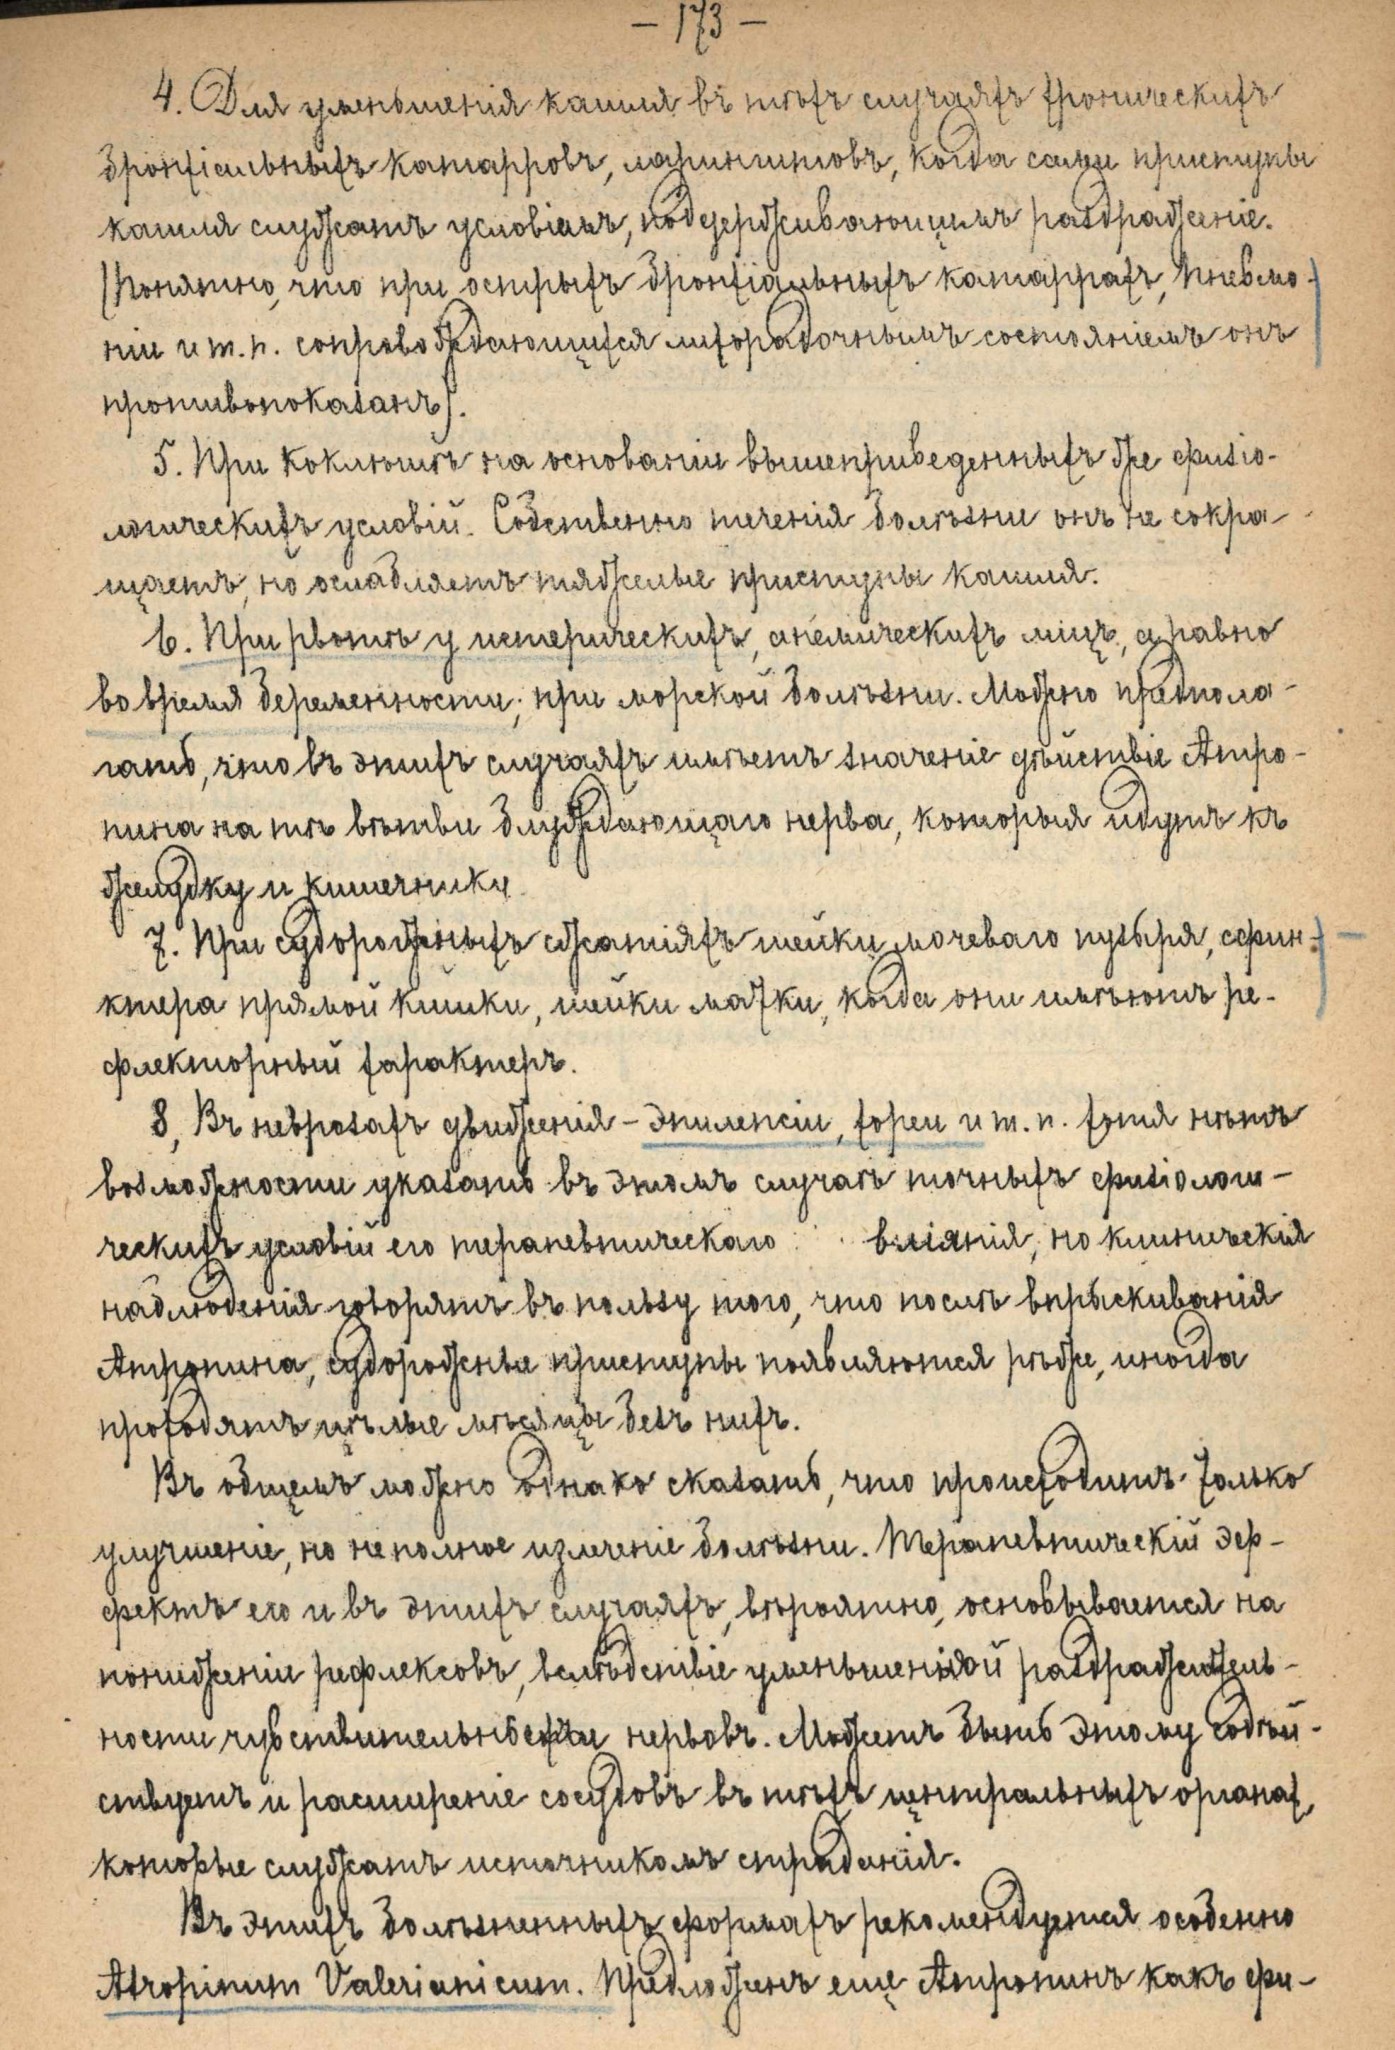 — 173 —
4. Для уменьшенія кашля въ тѣхъ случаяхъ хроническихъ
бронхіальныхъ катарровъ, ларингитовъ, когда сами приступы
кашля служатъ условіемъ, поддерживающимъ раздраженіе.
(Понятно, что при острыхъ бронхіальныхъ катаррахъ, пневмо-
ніи и т.п. сопровождающихся лихорадочнымъ состояніемъ онъ
противопоказанъ).
5. При коклюшѣ на основаніи вышеприведенныхъ же физіо-
логическихъ условій. Собственно теченія болѣзни онъ не сокра-
щаетъ, но ослабляетъ тяжелые приступы кашля.
6. При рвотѣ у истерическихъ, анемическихъ лицъ, а равно
во время беременности; при морской болѣзни. Можно предпола-
гать, что въ этихъ случаяхъ имѣетъ значеніе дѣйствіе Атро-
пина на тѣ вѣтви блуждающаго нерва, которыя идутъ къ
желудку и кишечнику
7. При судорожныхъ сжатіяхъ шейки мочеваго пузыря, сфин-
ктера прямой кишки, шейки матки, когда они имѣютъ ре-
флекторный характеръ.
8, Въ неврозахъ движенія – эпилепсіи, хореи и т. п. хотя нѣтъ
возможности указать въ этомъ случаѣ точныхъ физіологи-
ческихъ условій его терапевтическаго вліянія, но клиническія
наблюденія говорятъ въ пользу того, что послѣ впрыскиванія
Атропина, судорожные приступы появляются рѣже, иногда
проходятъ цѣлые мѣсяцы безъ нихъ.
Въ общемъ можно однако сказать, что происходитъ только
улучшеніе, но не полное излеченіе болѣзни. Терапевтическій эф-
фектъ его и въ этихъ случаяхъ, вѣроятно, основывается на
пониженіи рефлексовъ, вслѣдствіе уменьшенной раздражитель-
ности чувствительности нервовъ. Можетъ быть этому содѣй-
ствуетъ и расширеніе сосудовъ въ тѣхъ центральныхъ органах,
которые служатъ источникомъ страданія.
Въ этихъ болѣзненныхъ формахъ рекомендуется особенно
Atropinum Valerianicum. Предложенъ еще Атропинъ какъ фи-